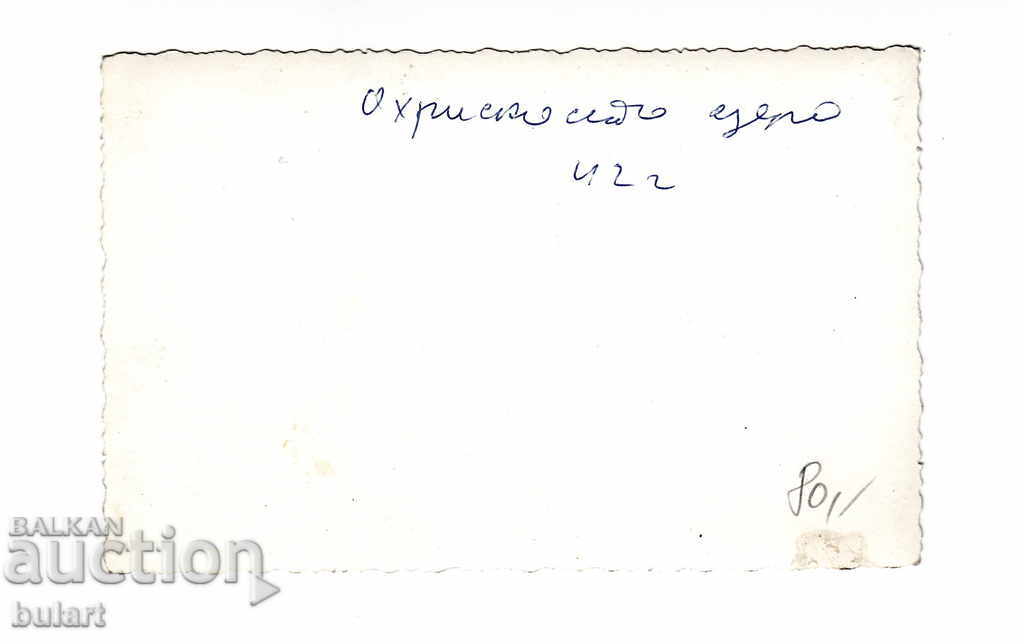 Охриското езеро
42 г
80,/
BALKAN
auction
bulart